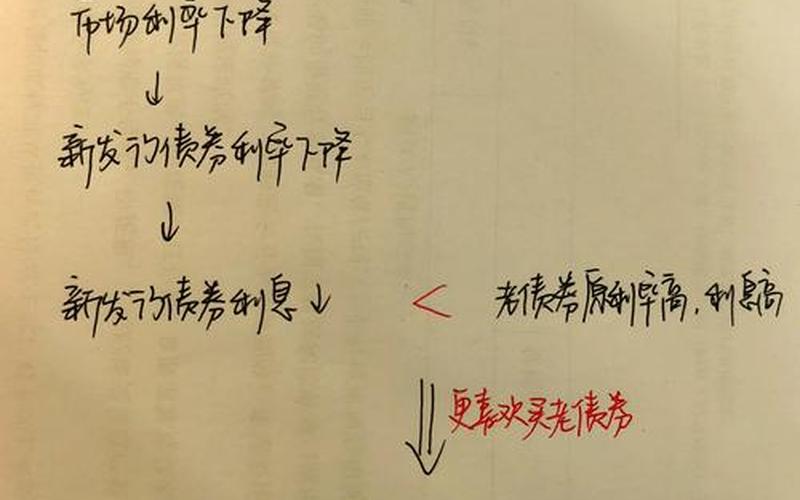 市场利率下降
↓
新发的债券利率下降
↓
新发的债券利息↓ < 老债券原利率高,利息高
⇓ 更喜欢买老债券